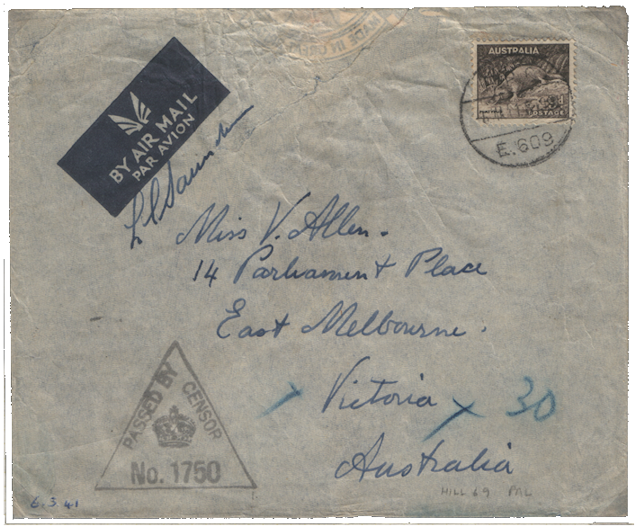 AUSTRALIA
POSTAGE
E.609
BY AIR MAIL
PAR AVION
L C Saunders
Miss V. Allen.
14 Parliament Place
East Melbourne.
Victoria
x 30
Australia
PASSED BY CENSOR
No. 1750
6.3.41
HILL 69 PAL